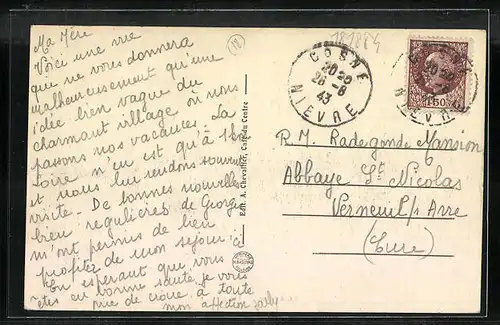 Ma Mère
Voici une vue
que ne vous donnera
malheureusement qu'une
idée bien vague du
charmant village où nous
passons nos vacances. La
Loire n'en est qu'à 1km
et nous lui rendons souvent
visite. De bonnes nouvelles
bien régulières de Georges
m'ont permis de bien
profiter de mon séjour.
En espérant que vous
êtes en bonne santé, je vous
prie de croire à toute
mon affection
181884
18
COSNE
20 30
26-8
43
NIEVRE
1F50
R. M. Radegonde Mansion
Abbaye St Nicolas
Verneuil s/ Avre
(Eure)
Edit. A. Chevallier, Café du Centre